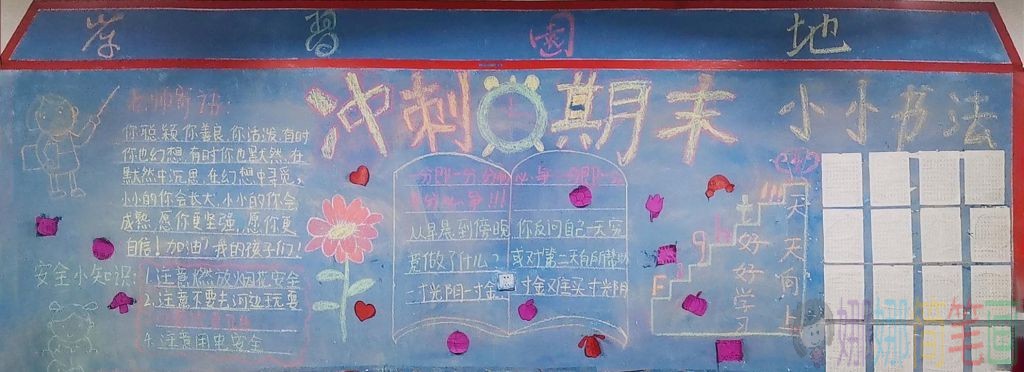 学习园地
冲刺期末
小小书法
老师寄语:
你聪颖,你善良,你活泼,有时
你也幻想,有时你也默然,在
默然中沉思,在幻想中寻觅,
小小的你会长大,小小的你会
成熟,愿你更坚强,愿你更
自信!加油!我的孩子们!
安全小知识:
1.注意燃放烟花安全
2.注意不要去河边玩耍
4.注意用电安全
从早晨到傍晚
做了什么?
一寸光阴一寸金
你反问自己一天究
或对第二天有所帮助
寸金难买寸光阴
好好学习
天天向上
娜娜 笔画